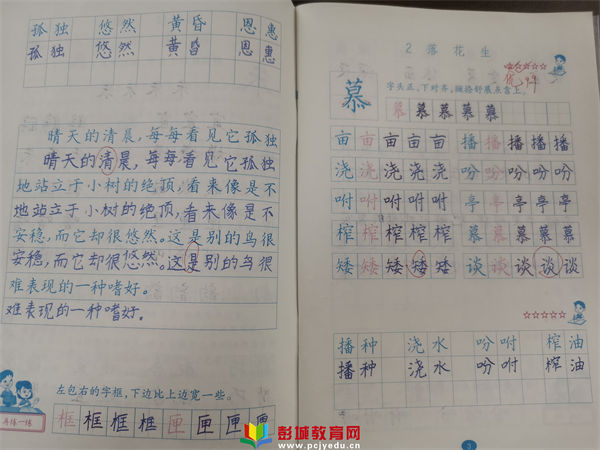 孤独 悠然 黄昏 恩惠
孤独 悠然 黄昏 恩惠
晴天的清晨，每每看见它孤独
晴天的清晨，每每看见它孤独
地站立于小树的绝顶，看来像是不
地站立于小树的绝顶，看来像是不
安稳，而它却很悠然。这是别的鸟很
安稳，而它却很悠然。这是别的鸟很
难表现的一种嗜好。
难表现的一种嗜好。
左包右的字框，下边比上边宽一些。
再练一练
框 框 框 框 匣 匣 匣 匣
2 落花生
优
字头正，下对齐，撇捺舒展点含上。
慕
慕 慕 慕 慕 慕
亩 亩 亩 亩 亩 播 播 播 播 播
浇 浇 浇 浇 浇 吩 吩 吩 吩 吩
咐 咐 咐 咐 咐 亭 亭 亭 亭 亭
榨 榨 榨 榨 榨 慕 慕 慕 慕 慕
矮 矮 矮 矮 矮 谈 谈 谈 谈 谈
播种 浇水 吩咐 榨油
播种 浇水 吩咐 榨油
3
彭城教育网
www.pcjyedu.cn